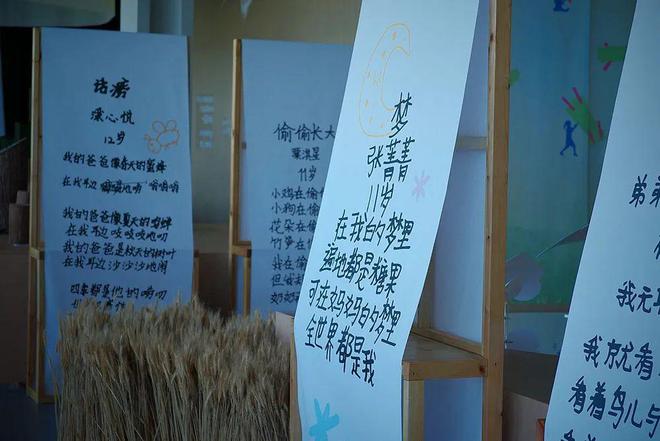 话痨
梁心悦
12岁
我的爸爸像春天的蜜蜂
在我耳边嗡嗡地嗡嗡嗡
我的爸爸像夏天的蚊蝉
在我耳边吱吱吱地叨
我的爸爸是秋天的树叶
在我耳边沙沙沙地闹
四季都是他的唠叨
偷偷长大
11岁
小鸡在偷
小狗在偷
花朵在偷
竹笋在偷
我在偷
但我
奶奶
梦
张菁菁
11岁
在我的梦里
遍地都是糖果
可在妈妈的梦里
全世界都是我
弟弟
我无
我就看
看着鸟儿与